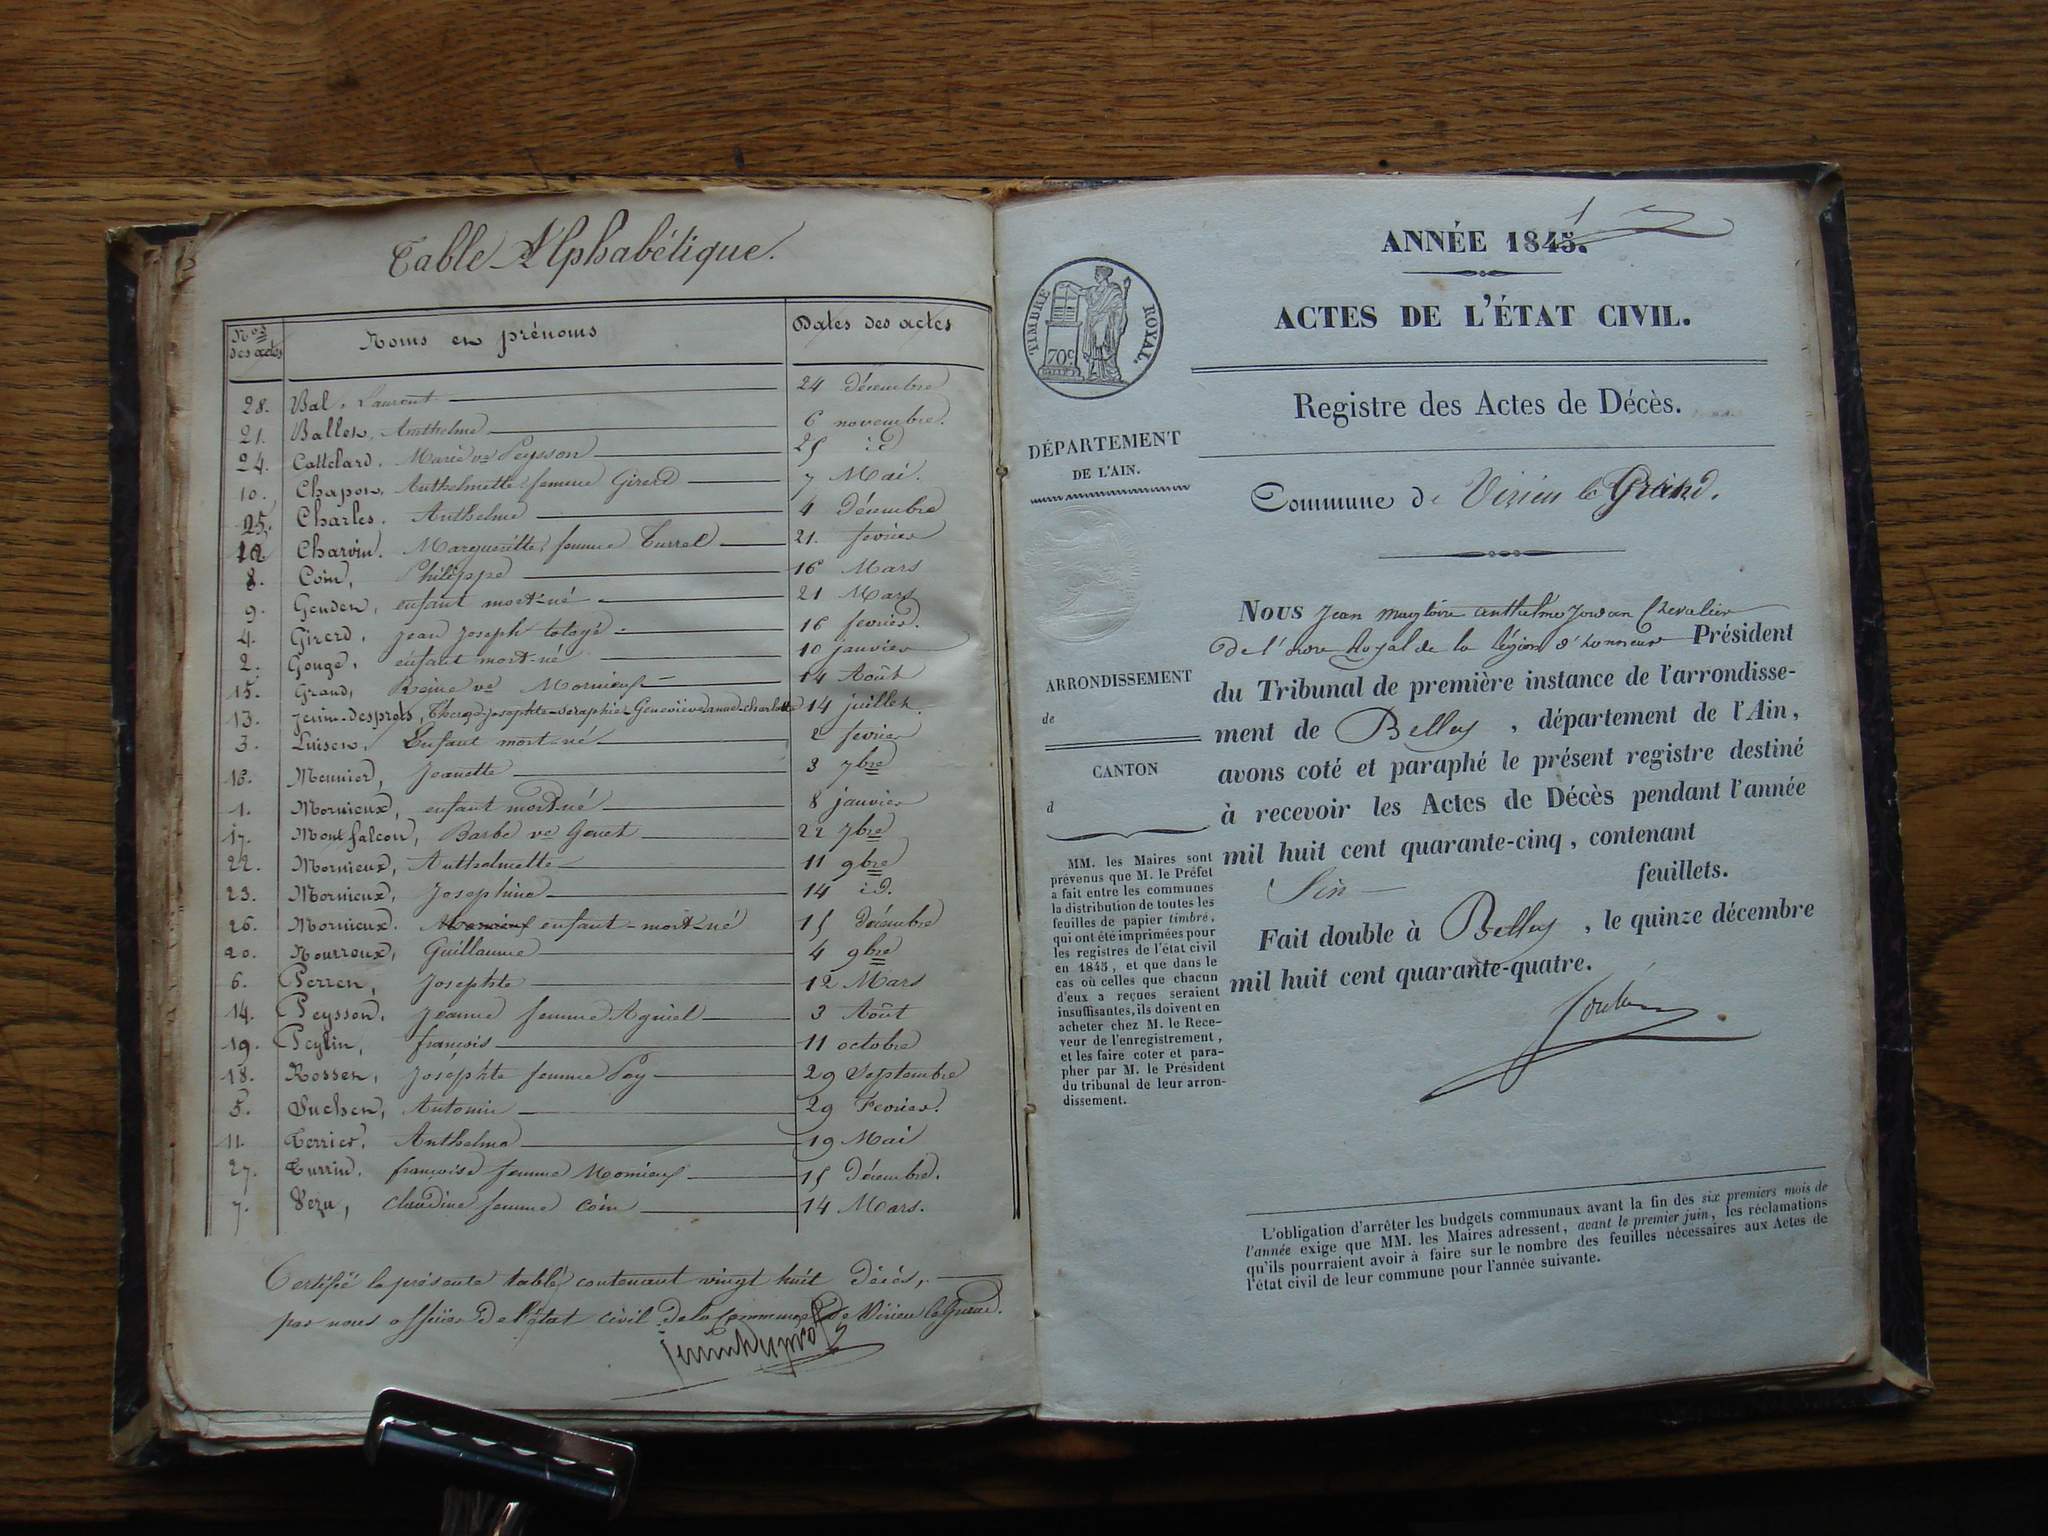 Table Alphabétique.
Nos des actes Noms et prénoms Dates des actes
28. Bal, Laurent 24 décembre
21. Ballet, Anthelme 6 novembre.
24. Cattelard. Marie ve Peysson 25 id
10. Chapot, Anthelmette femme Girerd 7 Mai.
25. Charles. Anthelme 4 Décembre
12 Charvin. Margueritte, femme Turrel 21. fevrier
8. Coin, Philippe 16 Mars
9. Genden, enfant mort-né 21 Mars
4. Girerd, Jean Joseph 16 fevrier.
2. Gouge, enfant mort-né 10 janvier
15. Grand, Reine ve Mornieux 14 Août
13. Jenin-desprots, Josephte-Seraphie-Geneviève-anne-charlotte 14 juillet.
3. Luisen, Enfant mort-né 2 fevrier
16. Meunier, Jeanette 3 7bre
1. Mornieux, enfant mort-né 8 janvier
17. Montfalcon, Barbe ve Genet 22 7bre
22. Mornieux, Anthelmette 11 9bre
23. Mornieux, Josephine 14 id.
26. Mornieux. enfant-mort-né 15 Décembre
20. Mourroux, Guillaume 4 9bre
6. Perret, Josephte 12 Mars
14. Peysson, Jeanne femme Agniel 3 Août
19. Peylin, françois 11 octobre
18. Rosset, Josephte femme Pey 29 Septembre
5. Suchet, Antoine 29 Fevrier.
11. Terrier, Anthelme 19 Mai
27. Turrin. françoise femme Mornieux 15 Décembre.
7. Vezu, claudine femme coin 14 Mars.
Certifié la présente table contenant vingt huit Décès,
par nous officier de l'état civil de la commune de Virieu le Grand.
ANNÉE 1845.
ACTES DE L'ÉTAT CIVIL.
TIMBRE ROYAL.
70c
Registre des Actes de Décès.
DÉPARTEMENT
DE L'AIN.
Commune de Virieu le Grand.
ARRONDISSEMENT
de
CANTON
d
MM. les Maires sont
prévenus que M. le Préfet
a fait entre les communes
la distribution de toutes les
feuilles de papier timbré,
qui ont été imprimées pour
les registres de l'état civil
en 1845, et que dans le
cas où celles que chacun
d'eux a reçues seraient
insuffisantes, ils doivent en
acheter chez M. le Rece-
veur de l'enregistrement,
et les faire coter et para-
pher par M. le Président
du tribunal de leur arron-
dissement.
NOUS Jean magloire anthelme Jordan Chevalier
De l'ordre Royal de la légion d'honneur Président
du Tribunal de première instance de l'arrondisse-
ment de Belley, département de l'Ain,
avons coté et paraphé le présent registre destiné
à recevoir les Actes de Décès pendant l'année
mil huit cent quarante-cinq, contenant
Six feuillets.
Fait double à Belley, le quinze décembre
mil huit cent quarante-quatre.
L'obligation d'arrêter les budgets communaux avant la fin des six premiers mois de
l'année exige que MM. les Maires adressent, avant le premier juin, les réclamations
qu'ils pourraient avoir à faire sur le nombre des feuilles nécessaires aux Actes de
l'état civil de leur commune pour l'année suivante.